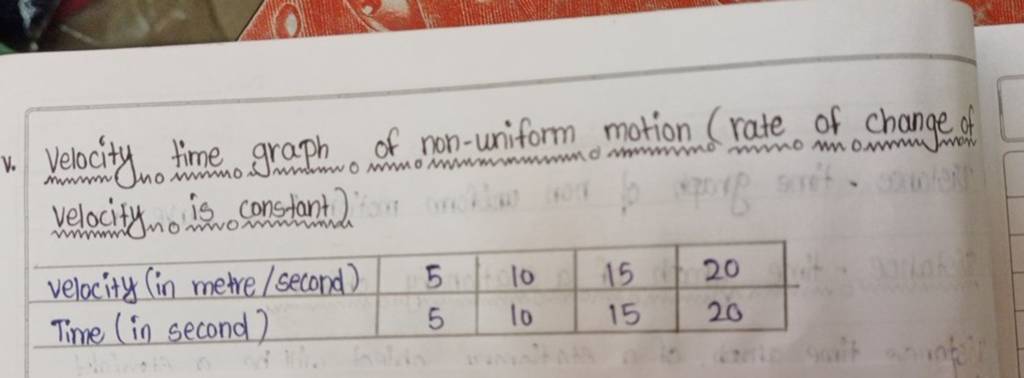 v. Velocity time graph of non-uniform motion (rate of change of
velocity is constant)
velocity (in metre/second) 5 10 15 20
Time (in second) 5 10 15 20